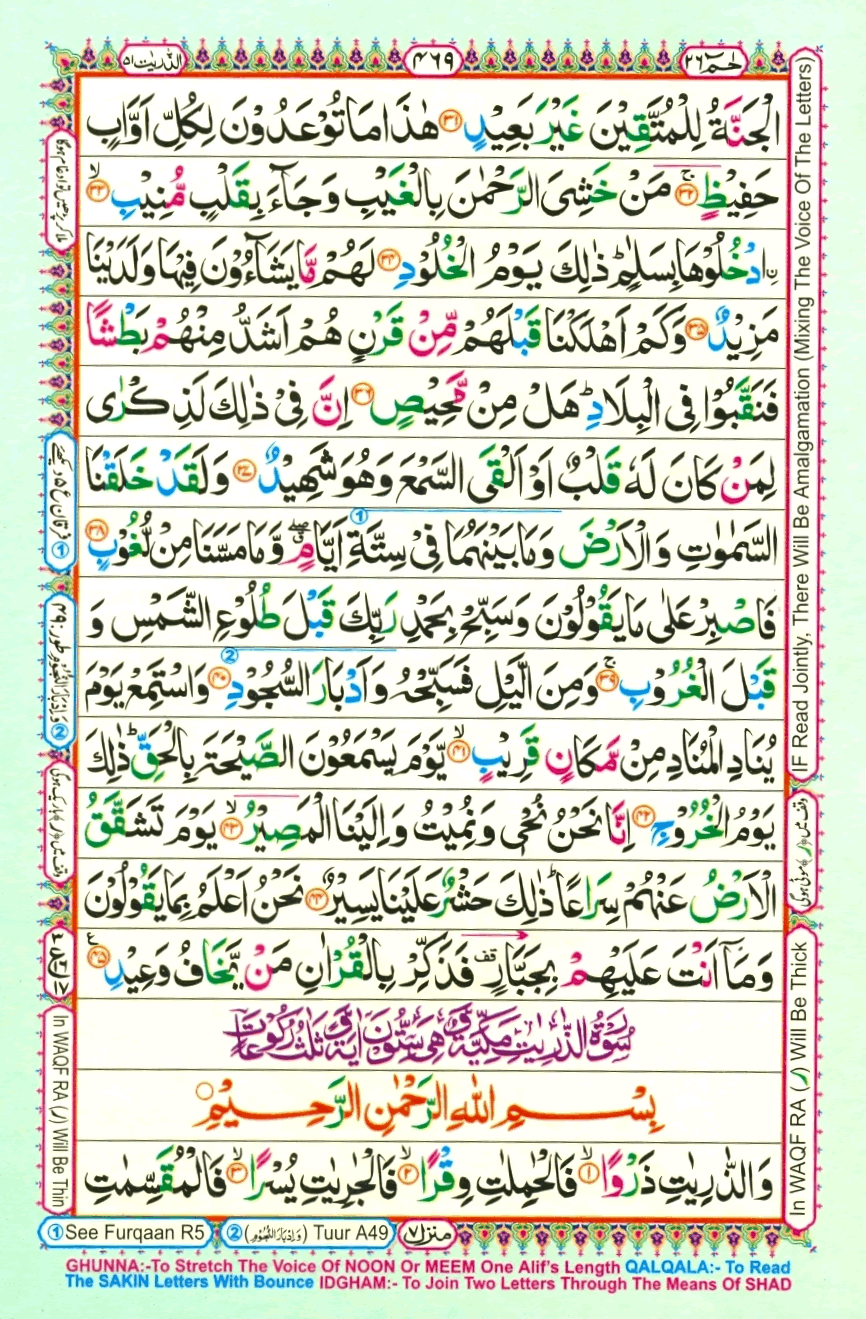 الذّٰریٰت ۵۱
۴۶۹
حٰمٓ ۲۶
الْجَنَّةُ لِلْمُتَّقِیْنَ غَیْرَ بَعِیْدٍ ﴿۳۱﴾ هٰذَا مَا تُوْعَدُوْنَ لِكُلِّ اَوَّابٍ
حَفِیْظٍ ۚ﴿۳۲﴾ مَنْ خَشِیَ الرَّحْمٰنَ بِالْغَیْبِ وَجَآءَ بِقَلْبٍ مُّنِیْبِ ۙ﴿۳۳﴾
ِ۟ادْخُلُوْهَا بِسَلٰمٍ ؕ ذٰلِكَ یَوْمُ الْخُلُوْدِ ﴿۳۴﴾ لَهُمْ مَّا یَشَآءُوْنَ فِیْهَا وَلَدَیْنَا
مَزِیْدٌ ﴿۳۵﴾ وَكَمْ اَهْلَكْنَا قَبْلَهُمْ مِّنْ قَرْنٍ هُمْ اَشَدُّ مِنْهُمْ بَطْشًا
فَنَقَّبُوْا فِی الْبِلَادِ ؕ هَلْ مِنْ مَّحِیْصٍ ﴿۳۶﴾ اِنَّ فِیْ ذٰلِكَ لَذِكْرٰی
لِمَنْ كَانَ لَهٗ قَلْبٌ اَوْ اَلْقَی السَّمْعَ وَهُوَ شَهِیْدٌ ﴿۳۷﴾ وَلَقَدْ خَلَقْنَا
السَّمٰوٰتِ وَالْاَرْضَ وَمَا بَیْنَهُمَا فِیْ سِتَّةِ اَیَّامٍ ۖۗ وَّمَا مَسَّنَا مِنْ لُّغُوْبٍ ﴿۳۸﴾
فَاصْبِرْ عَلٰی مَا یَقُوْلُوْنَ وَسَبِّحْ بِحَمْدِ رَبِّكَ قَبْلَ طُلُوْعِ الشَّمْسِ وَ
قَبْلَ الْغُرُوْبِ ۚ﴿۳۹﴾ وَمِنَ الَّیْلِ فَسَبِّحْهُ وَاَدْبَارَ السُّجُوْدِ ﴿۴۰﴾ وَاسْتَمِعْ یَوْمَ
یُنَادِ الْمُنَادِ مِنْ مَّكَانٍ قَرِیْبٍ ۙ﴿۴۱﴾ یَّوْمَ یَسْمَعُوْنَ الصَّیْحَةَ بِالْحَقِّ ؕ ذٰلِكَ
یَوْمُ الْخُرُوْجِ ﴿۴۲﴾ اِنَّا نَحْنُ نُحْیٖ وَنُمِیْتُ وَاِلَیْنَا الْمَصِیْرُ ۙ﴿۴۳﴾ یَوْمَ تَشَقَّقُ
الْاَرْضُ عَنْهُمْ سِرَاعًا ؕ ذٰلِكَ حَشْرٌ عَلَیْنَا یَسِیْرٌ ﴿۴۴﴾ نَحْنُ اَعْلَمُ بِمَا یَقُوْلُوْنَ
وَمَاۤ اَنْتَ عَلَیْهِمْ بِجَبَّارٍ قف فَذَكِّرْ بِالْقُرْاٰنِ مَنْ یَّخَافُ وَعِیْدِ ﴿۴۵﴾
سُوْرَةُ الذّٰرِیٰتِ مَكِّیَّةٌ وَّهِیَ سِتُّوْنَ اٰیَةً وَّثَلٰثُ رُكُوْعَاتٍ
بِسْمِ اللّٰهِ الرَّحْمٰنِ الرَّحِیْمِ
وَالذّٰرِیٰتِ ذَرْوًا ۙ﴿۱﴾ فَالْحٰمِلٰتِ وِقْرًا ۙ﴿۲﴾ فَالْجٰرِیٰتِ یُسْرًا ۙ﴿۳﴾ فَالْمُقَسِّمٰتِ
IF Read Jointly, There Will Be Amalgamation (Mixing The Voice Of The Letters)
وقف میں ﴿ر﴾ موٹی ہوگی
In WAQF RA (ر) Will Be Thick
ملا کر پڑھیں تو ادغام ہوگا
① فرقان ع ۵ دیکھئے
② وَاِدْبَارَ النُّجُوْمِ طور: ۴۹
وقف میں ﴿ر﴾ باریک ہوگی
In WAQF RA (ر) Will Be Thin
① See Furqaan R5
② (وَاِدْبَارَ النُّجُوْمِ) Tuur A49
منزل ۷
GHUNNA:-To Stretch The Voice Of NOON Or MEEM One Alif's Length QALQALA:- To Read
The SAKIN Letters With Bounce IDGHAM:- To Join Two Letters Through The Means Of SHAD